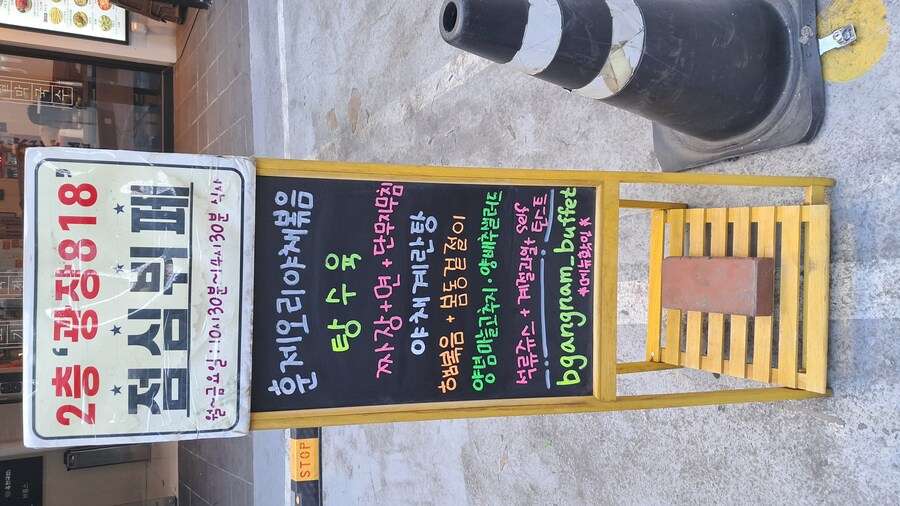 2층 '광장818'
점심뷔페
월~금요일 : 10시30분~14시30분 식사
훈제오리야채볶음
탕수육
짜장+면+단무지무침
야채계란탕
볶음 + 볶음
양념마늘고추지·양배추샐러드
석류주스 + 계절과일 + Self 토스트
bgangnam_buffet
*메뉴확인*
STOP